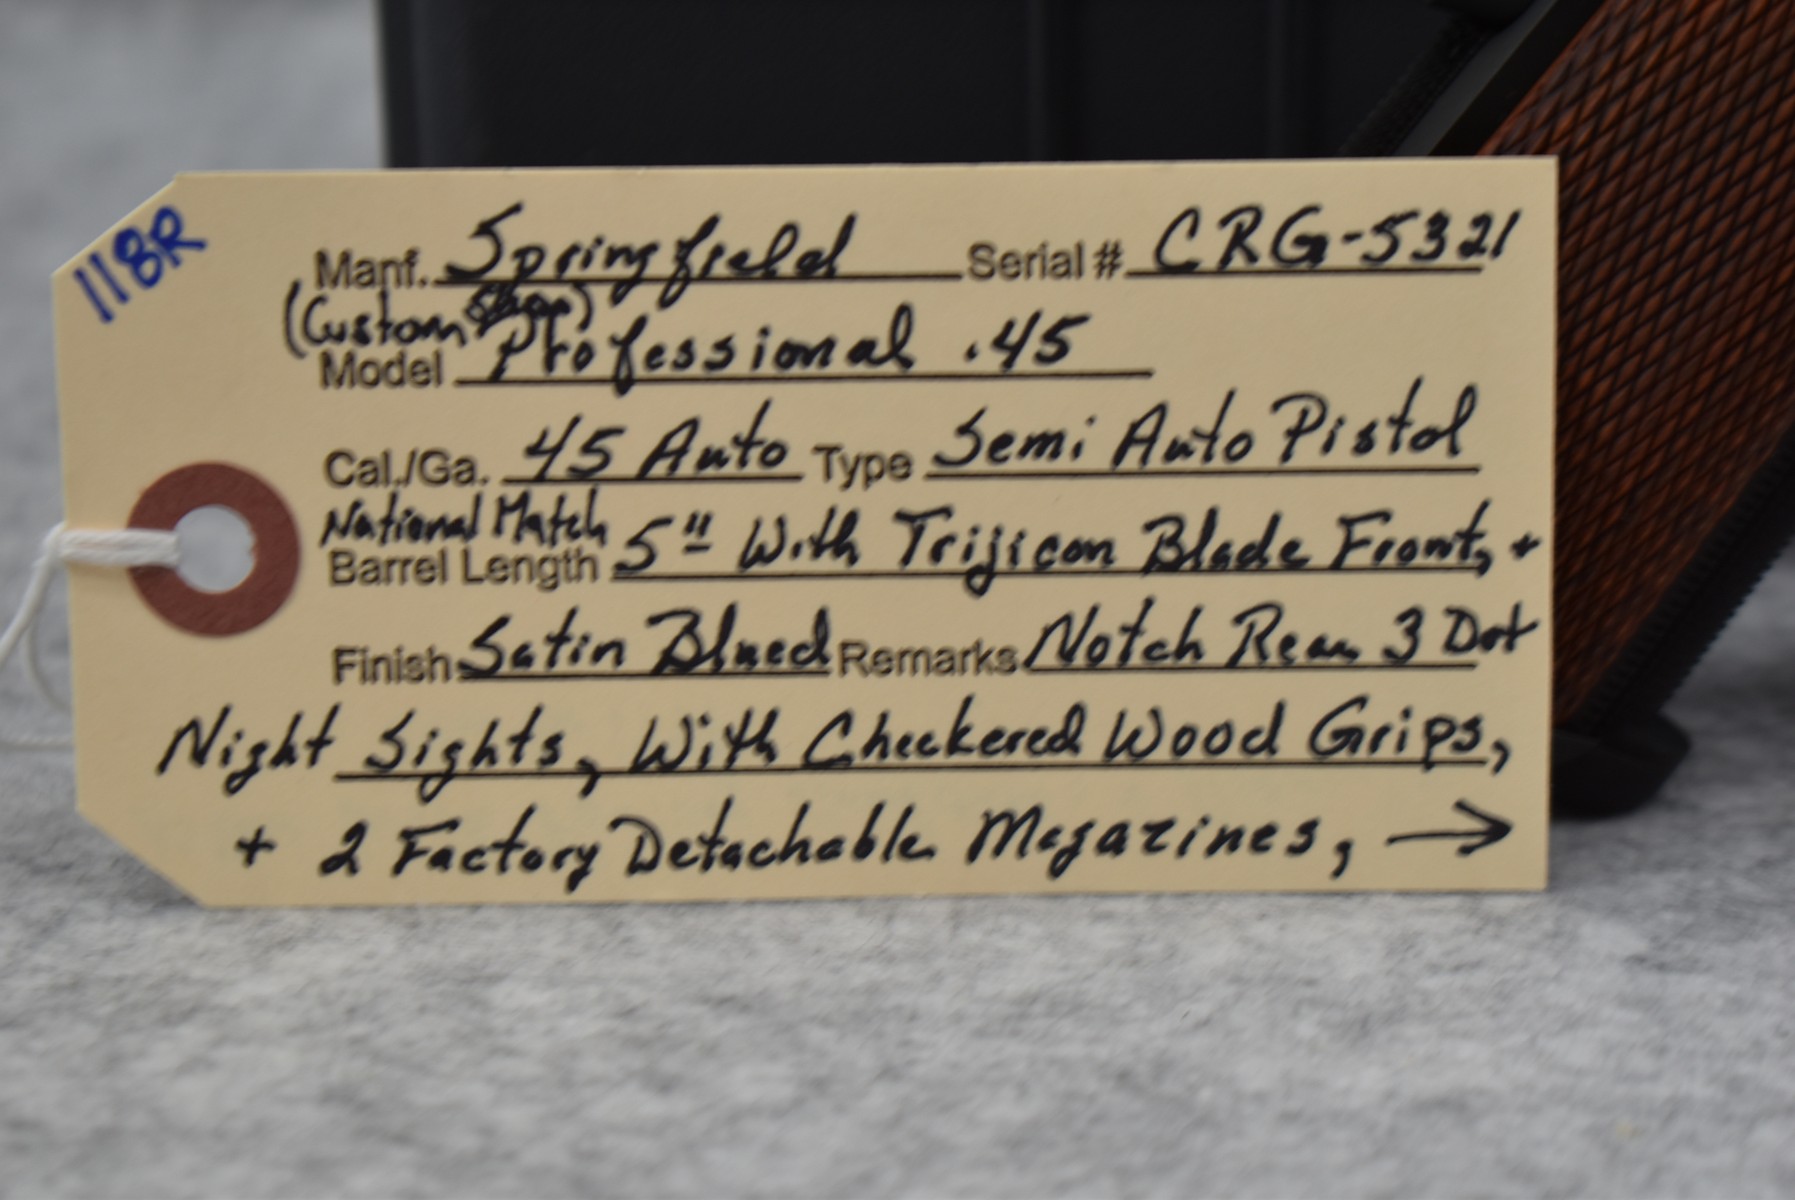 118R
Manf. Springfield Serial # CRG-5321
(Custom Shop)
Model Professional .45
Cal./Ga. 45 Auto Type Semi Auto Pistol
National Match
Barrel Length 5" With Trijicon Blade Front, +
Finish Satin Blued Remarks Notch Rear 3 Dot
Night Sights, With Checkered Wood Grips,
+ 2 Factory Detachable Magazines, →